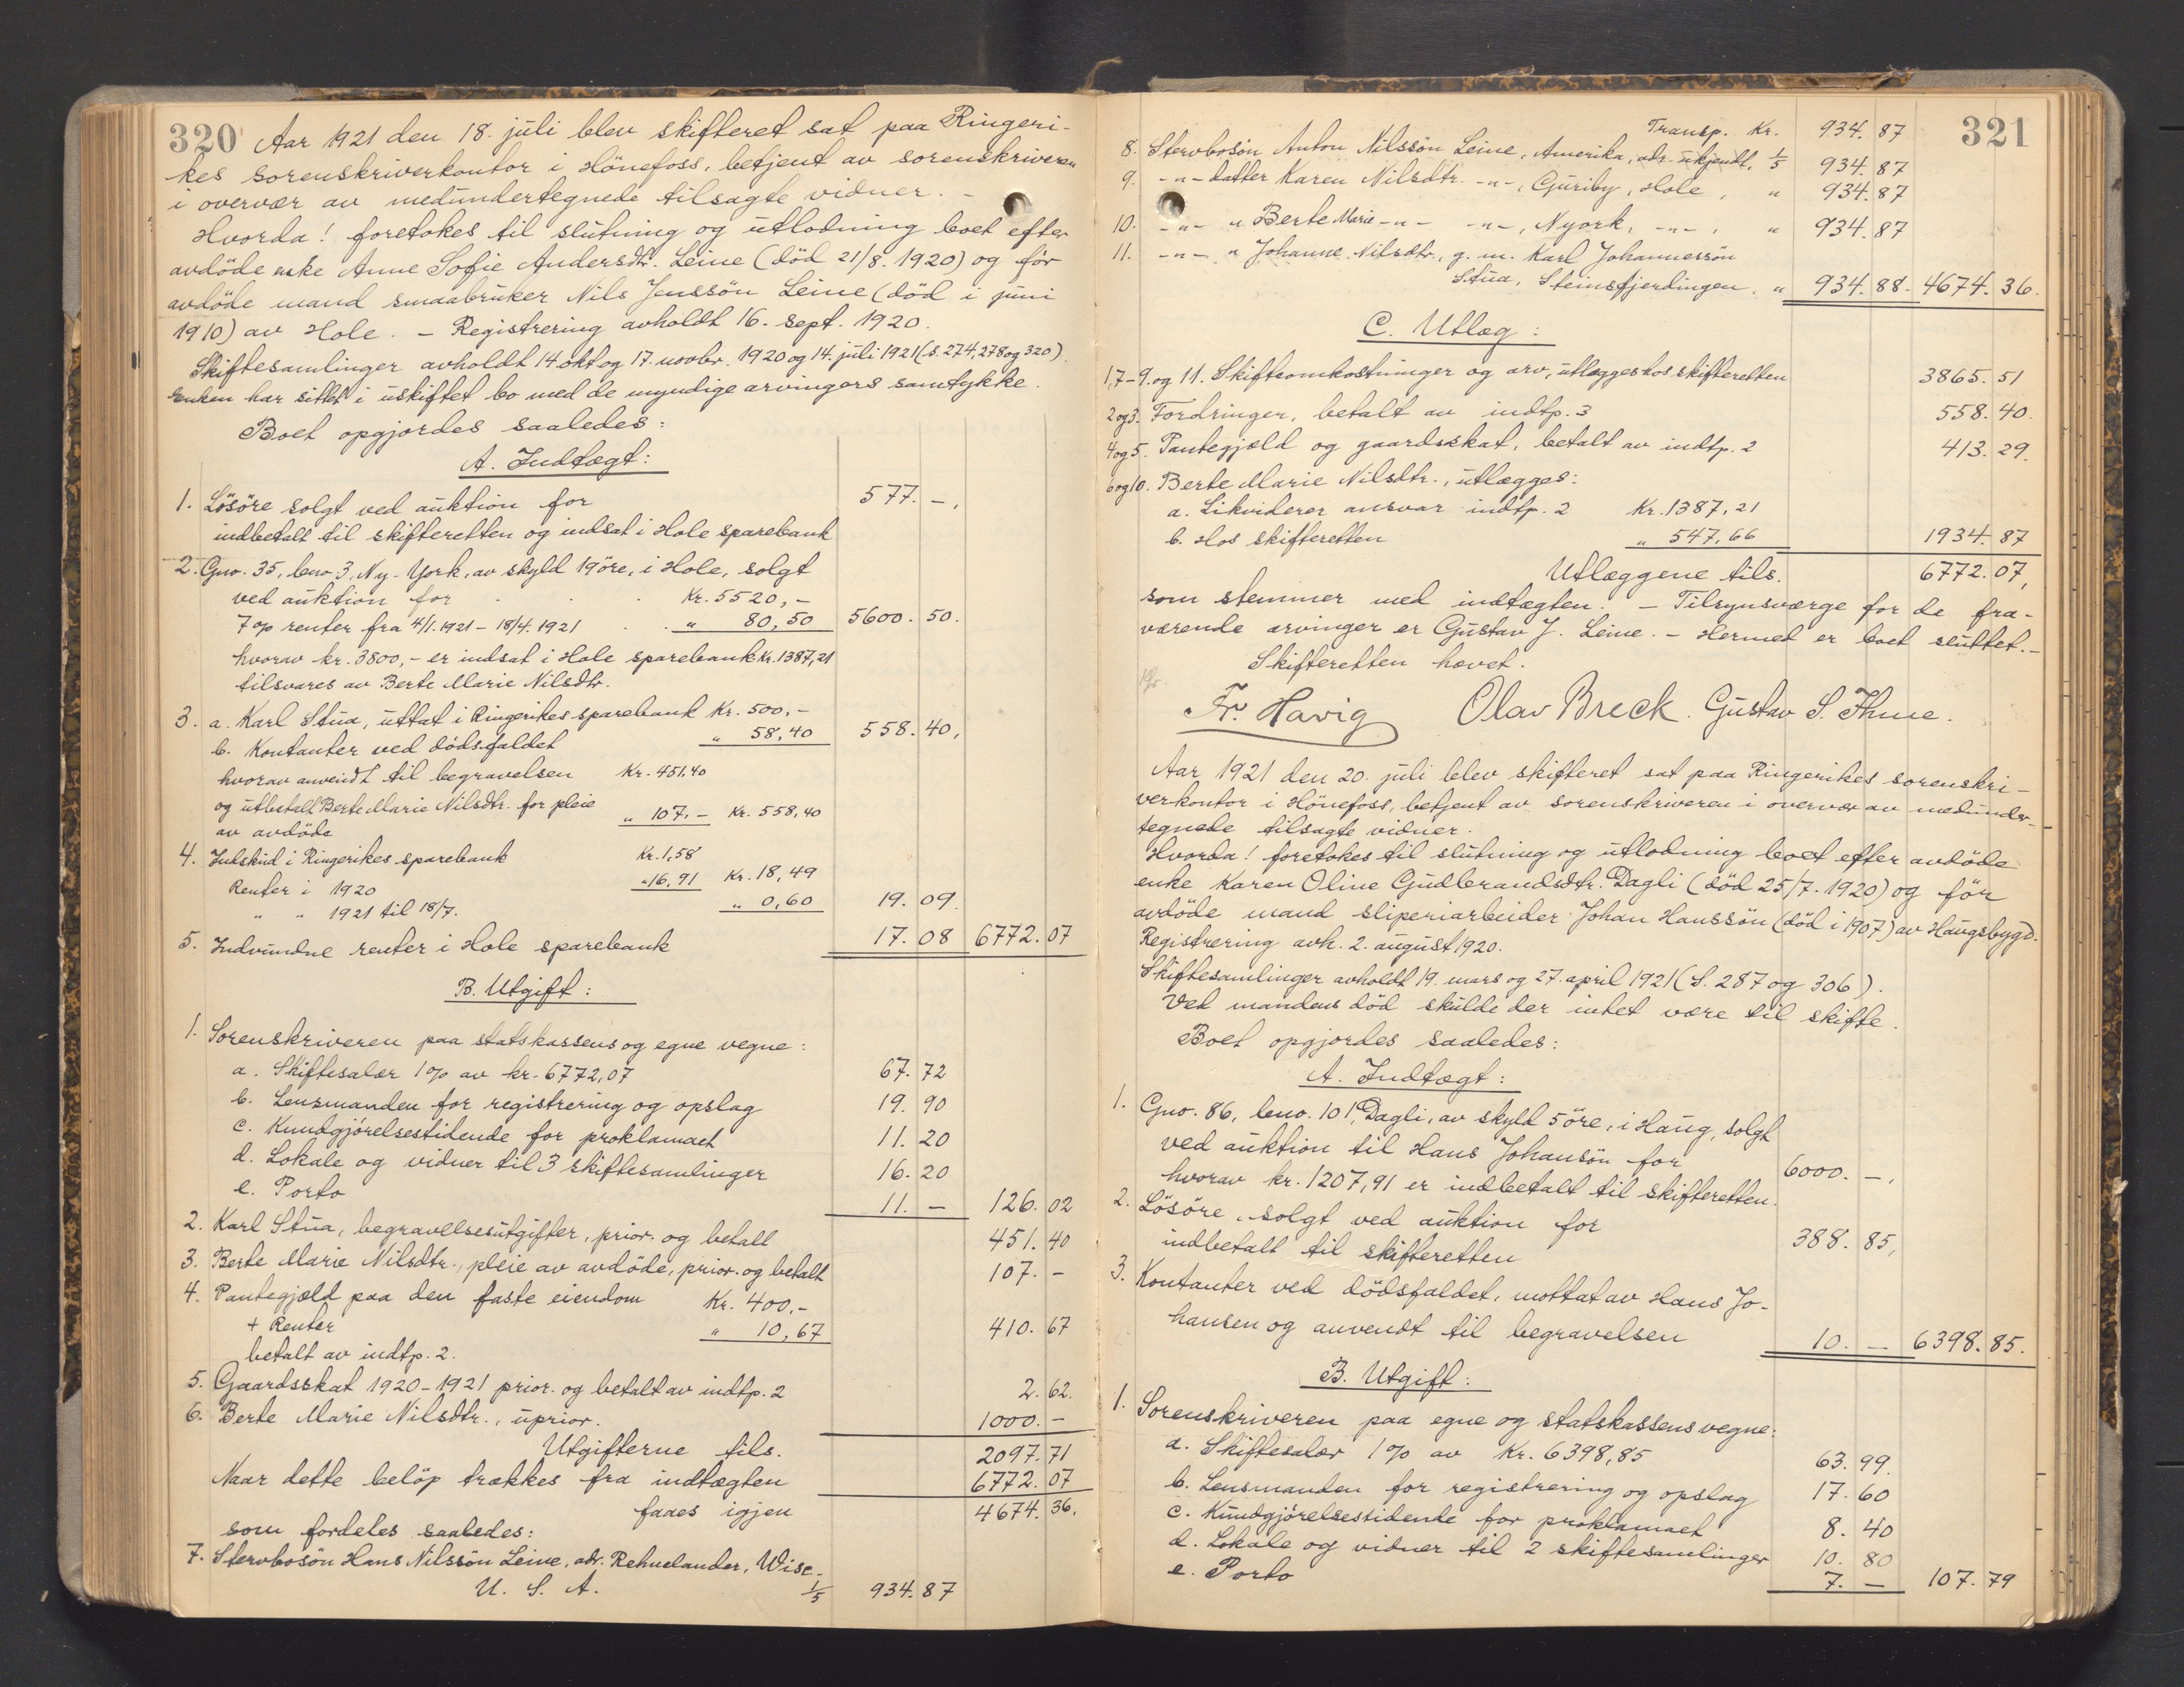 320 Aar 1921 den 18. juli blev skifteret sat paa Ringeri-
kes sorenskriverkontor i Hönefoss, betjent av sorenskriveren
i overvær av medundertegnede tilsagte vidner. -
Hvorda! foretokes til slutning og utlodning boet efter
avdöde enke Anne Sofie Andersdtr. Leine (död 21/8. 1920) og för
avdöde mand smaabruker Nils Jenssön Leine (död i juni
1910) av Hole. - Registrering avholdt 16. sept. 1920.
Skiftesamlinger avholdt 14 okt og 17. novbr. 1920 og 14. juli 1921 (s. 274, 278 og 320).
Enken har sittet i uskiftet bo med de myndige arvingers samtykke.
Boet opgjordes saaledes:
A. Indtægt:
1. Lösöre solgt ved auktion for 577. -,
indbetalt til skifteretten og indsat i Hole sparebank
2. Gno. 35, bno. 3, Ny-York, av skyld 19 öre, i Hole, solgt
ved auktion for . . . Kr. 5520,-
7 % renter fra 4/1. 1921 - 18/4. 1921 . . " 80,50 5600. 50.
hvorav kr. 3800,- er indsat i Hole sparebank Kr. 1387,21
tilsvares av Berte Marie Nilsdtr.
3. a. Karl Stua, uttat i Ringerikes sparebank Kr. 500,-
b. Kontanter ved dödsfaldet " 58,40 558. 40,
hvorav anvendt til begravelsen Kr. 451.40
og utbetalt Berte Marie Nilsdtr. for pleie
av avdöde " 107,- Kr. 558,40
4. Indskud i Ringerikes sparebank Kr. 1,58
Renter i 1920 " 16,91 Kr. 18,49
" " 1921 til 18/7. " 0,60 19. 09.
5. Indvundne renter i Hole sparebank 17. 08 6772. 07
B. Utgift:
1. Sorenskriveren paa statskassens og egne vegne:
a. Skiftesalær 1 % av kr. 6772,07 67. 72
b. Lensmanden for registrering og opslag 19. 90
c. Kundgjörelsestidende for proklamaet 11. 20
d. Lokale og vidner til 3 skiftesamlinger 16. 20
e. Porto 11. - 126. 02
2. Karl Stua, begravelsesutgifter, prior. og betalt 451. 40
3. Berte Marie Nilsdtr., pleie av avdöde, prior. og betalt 107. -
4. Pantegjæld paa den faste eiendom Kr. 400,-
+ Renter " 10,67 410. 67
betalt av indtp. 2.
5. Gaardsskat 1920-1921 prior. og betalt av indtp. 2 2. 62.
6. Berte Marie Nilsdtr., uprior. 1000. -
Utgifterne tils. 2097. 71
Naar dette belöp trækkes fra indtægten 6772. 07
faaes igjen 4674. 36.
som fordeles saaledes:
7. Stervbosön Hans Nilssön Leine, adr. Rehnelander, Wisc.
U. S. A. 1/5 934. 87
321
Transp. Kr. 934. 87
8. Stervbosön Anton Nilssön Leine, Amerika, adr. ukjendt, 1/5 934. 87
9. -"- datter Karen Nilsdtr. -"-, Guriby, Hole, " 934. 87
10. -"- " Berte Marie -"- -"-, Nyork, -"-, " 934. 87
11. -"- " Johanne Nilsdtr., g. m. Karl Johannessön
Stua, Steinsfjerdingen, " 934. 88. 4674. 36.
C. Utlæg:
1, 7-9. og 11. Skifteomkostninger og arv, utlægges hos skifteretten 3865. 51
2 og 3. Fordringer, betalt av indtp. 3 558. 40.
4 og 5. Pantegjæld og gaardsskat, betalt av indtp. 2 413. 29.
6 og 10. Berte Marie Nilsdtr., utlægges:
a. Likviderer ansvar indtp. 2 Kr. 1387,21
b. Hos skifteretten " 547,66 1934. 87
Utlæggene tils. 6772. 07,
som stemmer med indtægten. - Tilsynsværge for de fra-
værende arvinger er Gustav J. Leine. - Hermed er boet sluttet. -
Skifteretten hævet.
Fr. Havig Olav Breck. Gustav S. Thue.
Aar 1921 den 20. juli blev skifteret sat paa Ringerikes sorenskri-
verkontor i Hönefoss, betjent av sorenskriveren i overvær av medunder-
tegnede tilsagte vidner.
Hvorda! foretokes til slutning og utlodning boet efter avdöde
enke Karen Oline Gudbrandsdtr. Dagli (död 25/7. 1920) og för
avdöde mand sliperiarbeider Johan Hanssön (död i 1907) av Haugsbygd.
Registrering avh. 2. august 1920.
Skiftesamlinger avholdt 19. mars og 27. april 1921 (S. 287 og 306).
Ved mandens död skulde der intet være til skifte.
Boet opgjordes saaledes:
A. Indtægt:
1. Gno. 86, bno. 101, Dagli, av skyld 5 öre, i Haug, solgt
ved auktion til Hans Johansön for 6000. -,
hvorav kr. 1207,91 er indbetalt til skifteretten.
2. Lösöre, solgt ved auktion for 388. 85,
indbetalt til skifteretten
3. Kontanter ved dödsfaldet, mottat av Hans Jo-
hansen og anvendt til begravelsen 10. - 6398. 85.
B. Utgift:
1. Sorenskriveren paa egne og statskassens vegne:
a. Skiftesalær 1 % av Kr. 6398,85 63. 99.
b. Lensmanden for registrering og opslag 17. 60
c. Kundgjörelsestidende for proklamaet 8. 40
d. Lokale og vidner til 2 skiftesamlinger 10. 80
e. Porto 7. - 107. 79